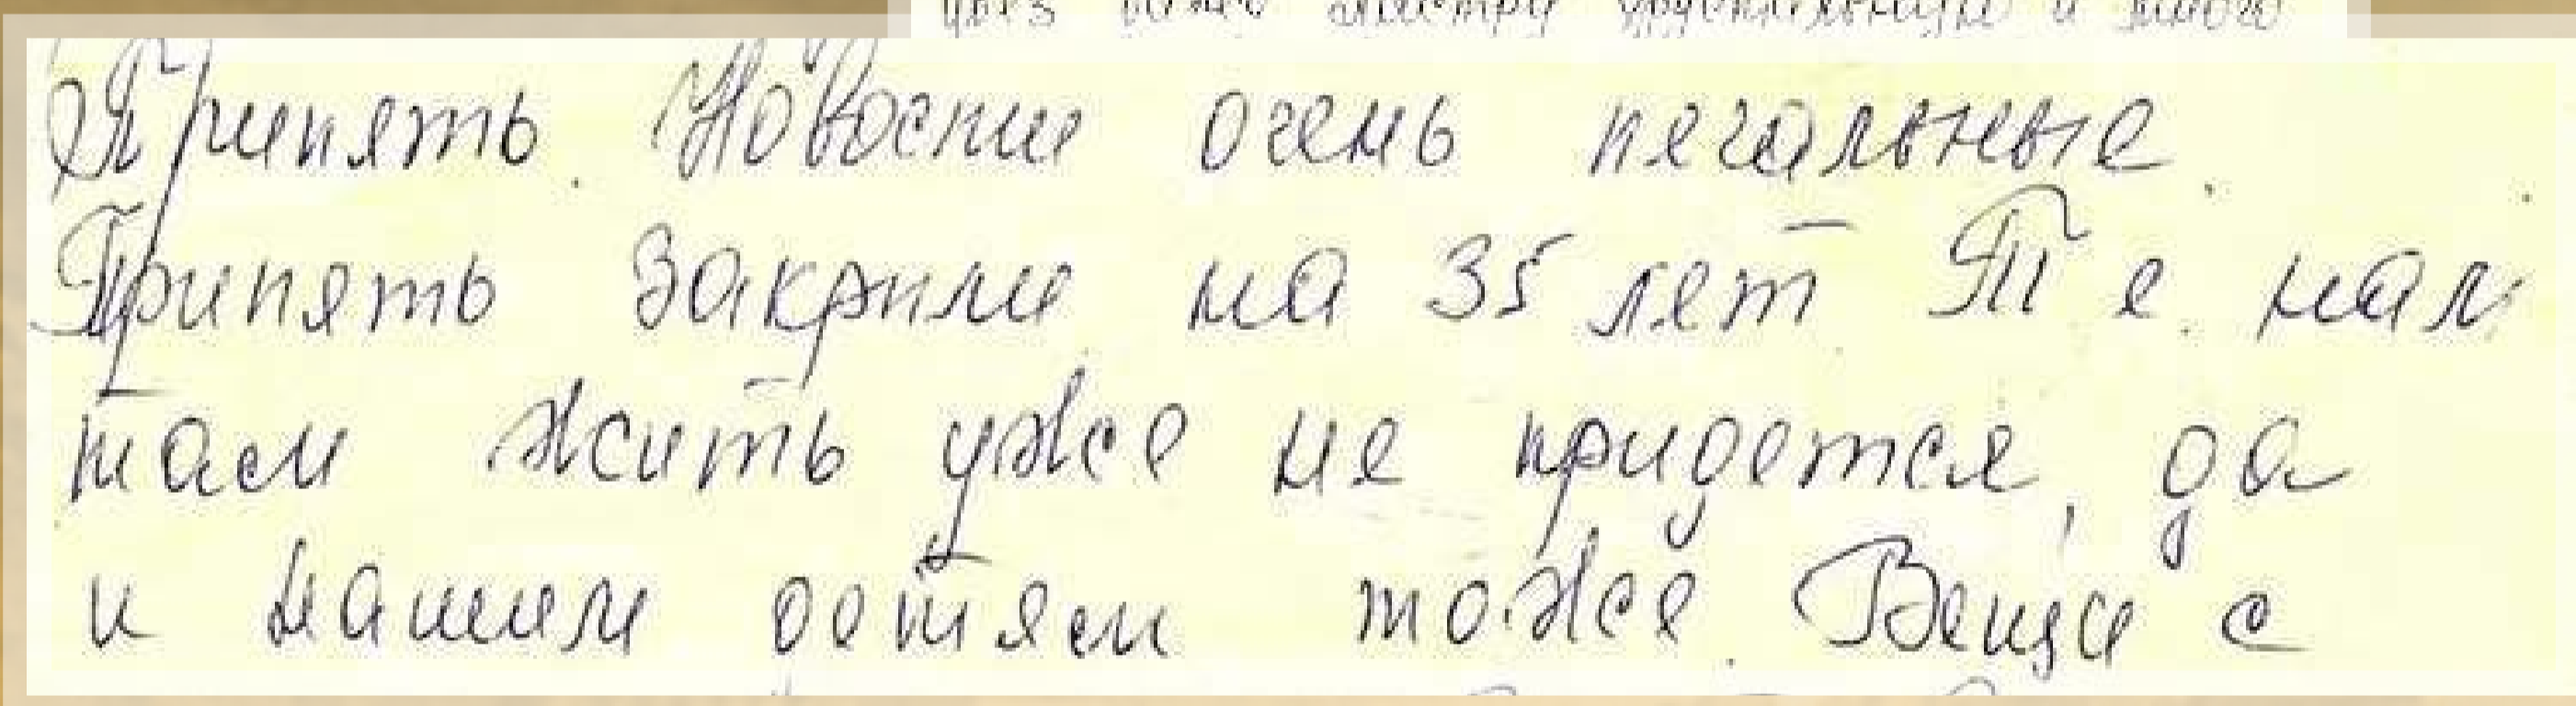 Припять. Новости очень печальные.
Припять закрыли на 35 лет Т.е. нам
там жить уже не придется, да
и нашим детям тоже. Вещи с